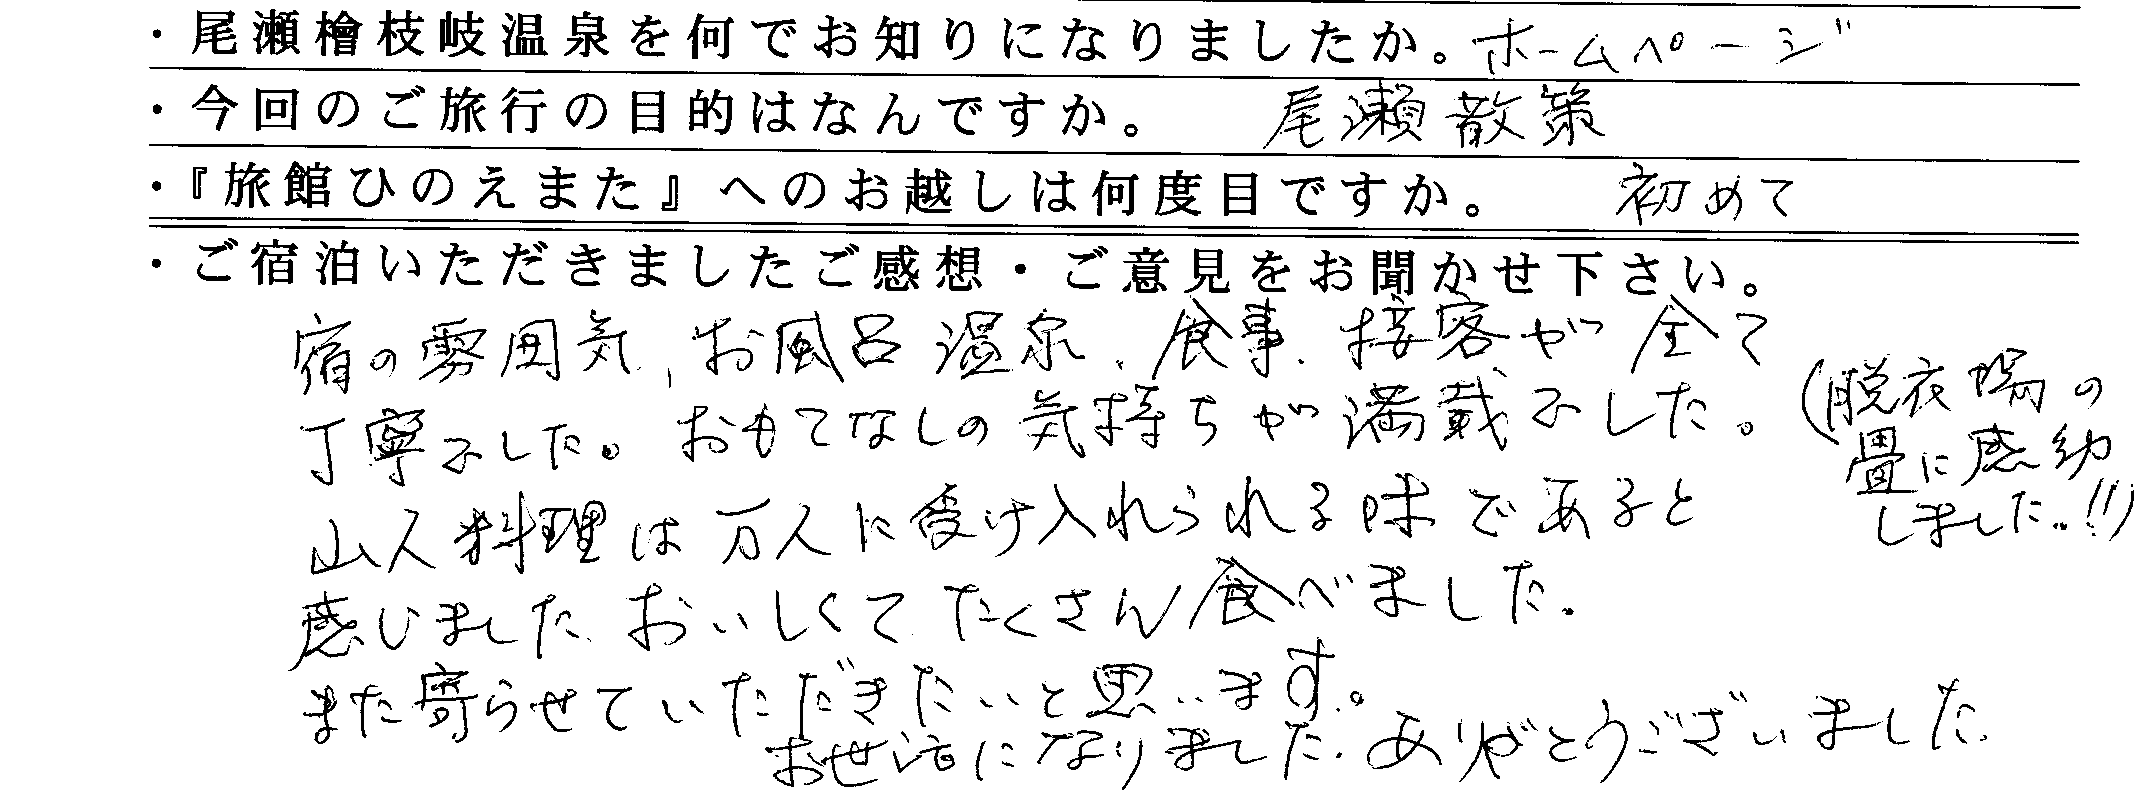 ・尾瀬檜枝岐温泉を何でお知りになりましたか。ホームページ
・今回のご旅行の目的はなんですか。 尾瀬散策
・『旅館ひのえまた』へのお越しは何度目ですか。 初めて
・ご宿泊いただきましたご感想・ご意見をお聞かせ下さい。
宿の雰囲気、お風呂温泉、食事、接客が全て
丁寧でした。おもてなしの気持ちが満載でした。
(脱衣場の
畳に感動
しました。!!)
山人料理は万人に受け入れられる味であると
感じました。おいしくてたくさん食べました。
また寄らせていただきたいと思います。
お世話になりました。ありがとうございました。